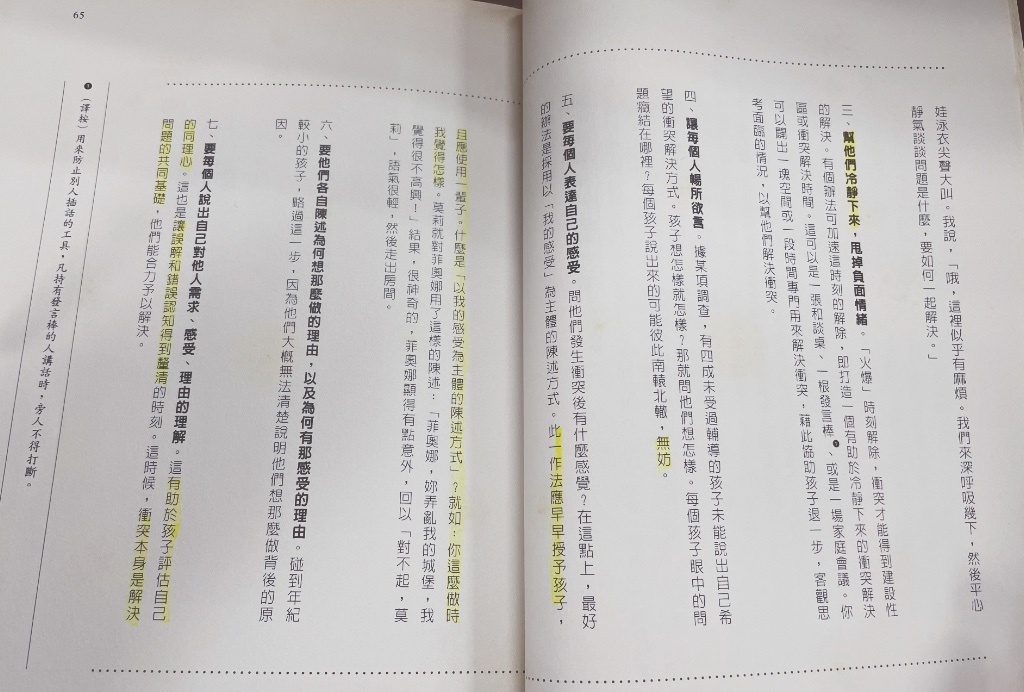 娃泳衣尖聲大叫。我說，「哦，這裡似乎有麻煩。我們來深呼吸幾下，然後平心
靜氣談談問題是什麼，要如何一起解決。」
三、幫他們冷靜下來，甩掉負面情緒。「火爆」時刻解除，衝突才能得到建設性
的解決。有個辦法可加速這時刻的解除，即打造一個有助於冷靜下來的衝突解決
區或衝突解決時間。這可以是一張和談桌、一根發言棒❶、或是一場家庭會議。你
可以闢出一塊空間或一段時間專門用來解決衝突，藉此協助孩子退一步，客觀思
考面臨的情況，以幫他們解決衝突。
四、讓每個人暢所欲言。據某項調查，有四成未受過輔導的孩子未能說出自己希
望的衝突解決方式。孩子想怎樣就怎樣？那就問他們想怎樣。每個孩子眼中的問
題癥結在哪裡？每個孩子說出來的可能彼此南轅北轍，無妨。
五、要每個人表達自己的感受。問他們發生衝突後有什麼感覺？在這點上，最好
的辦法是採用以「我的感受」為主體的陳述方式。此一作法應早早授予孩子，
且應使用一輩子。什麼是「以我的感受為主體的陳述方式」？就如：你這麼做時
我覺得怎樣。莫莉就對菲奧娜用了這樣的陳述：「菲奧娜，妳弄亂我的城堡，我
覺得很不高興！」結果，很神奇的，菲奧娜顯得有點意外，回以「對不起，莫
莉」，語氣很輕，然後走出房間。
六、要他們各自陳述為何想那麼做的理由，以及為何有那感受的理由。碰到年紀
較小的孩子，略過這一步，因為他們大概無法清楚說明他們想那麼做背後的原
因。
七、要每個人說出自己對他人需求、感受、理由的理解。這有助於孩子評估自己
的同理心。這也是讓誤解和錯誤認知得到釐清的時刻。這時候，衝突本身是解決
問題的共同基礎，他們能合力予以解決。
❶（譯按）用來防止別人插話的工具，凡持有發言棒的人講話時，旁人不得打斷。
65